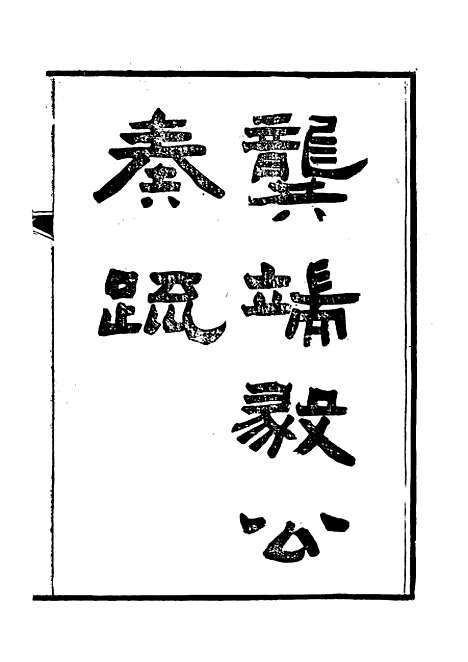 龔端毅公
奏疏